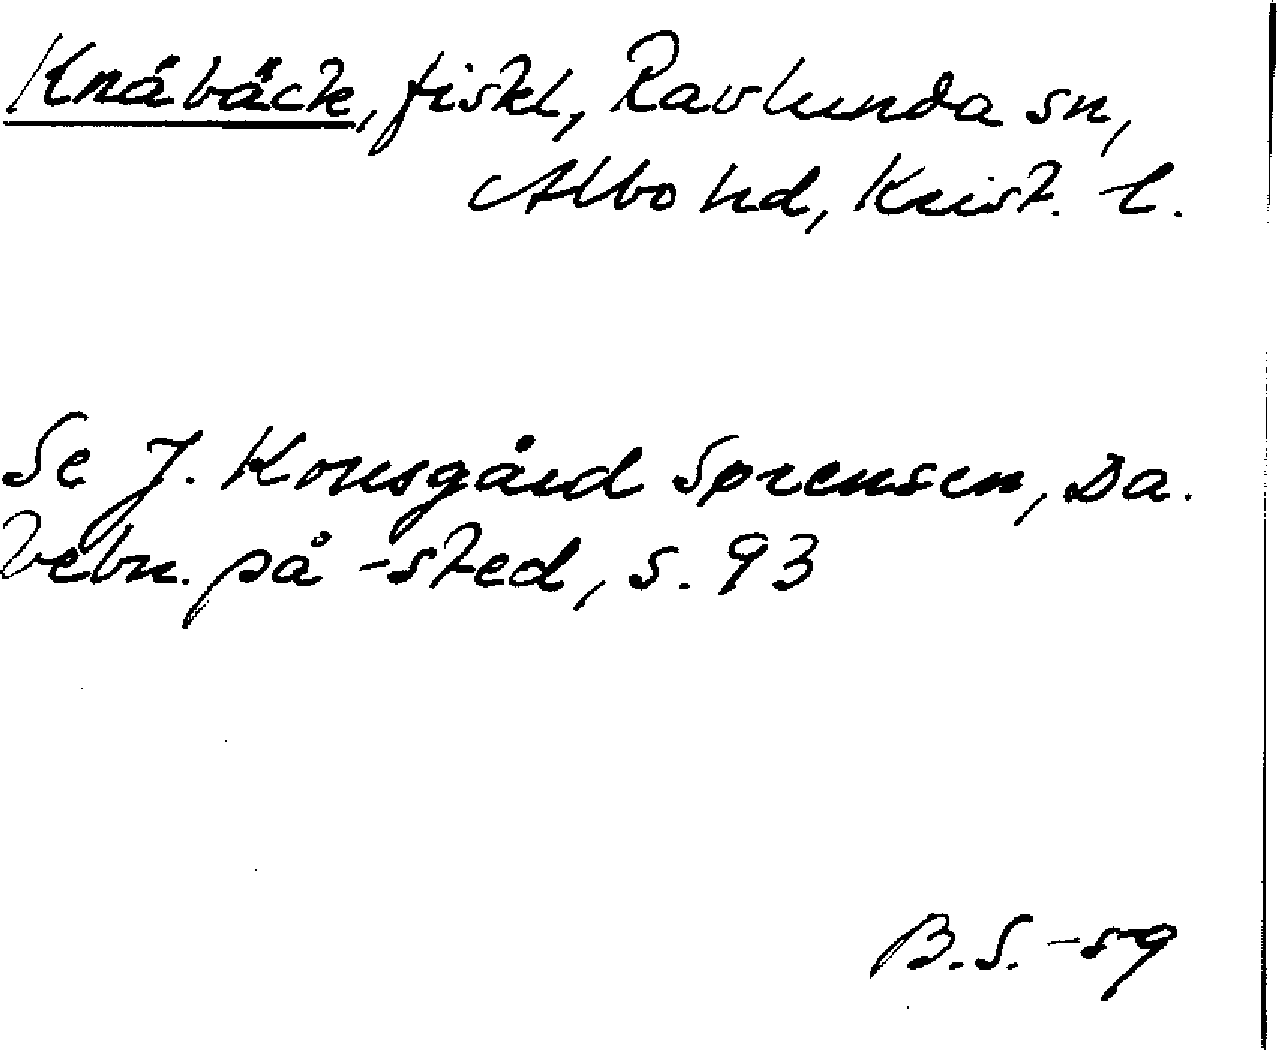 Knäbäck, fiskl, Ravlunda sn,
Albo hd, Krist. l.
Se J. Kousgård Sørensen, Da.
bebn. på -sted, s. 93
B.S. -59